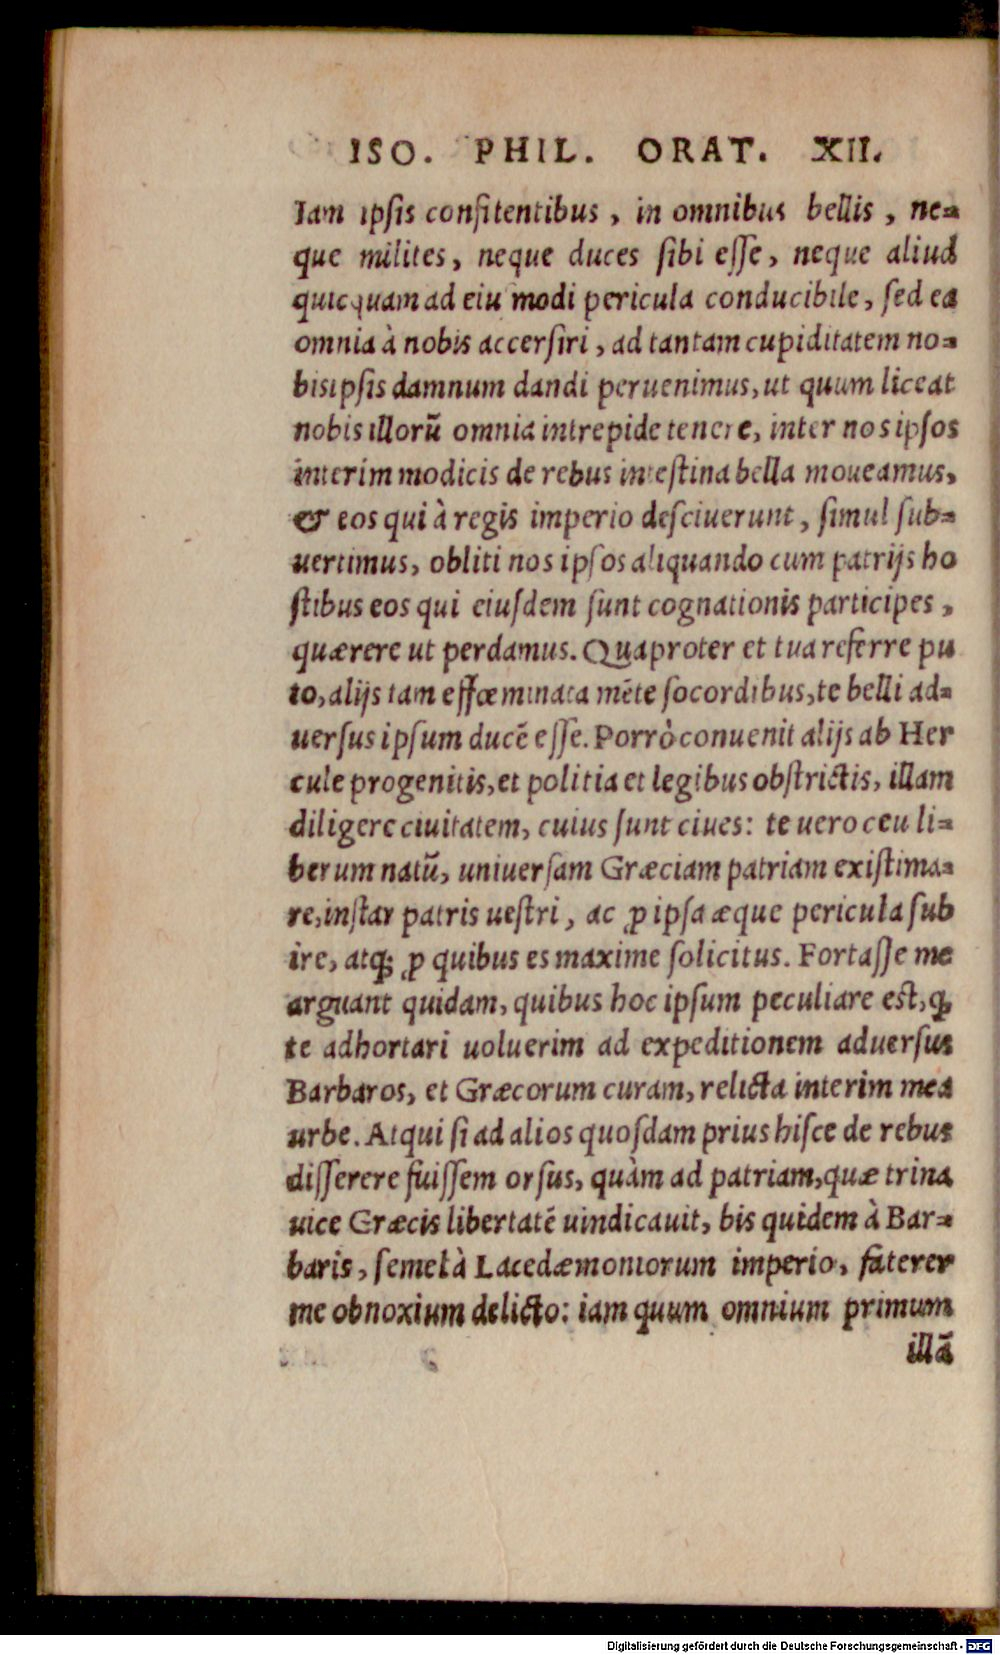 ISO. PHIL. ORAT. XII.
Iam ipsis confitentibus, in omnibus bellis, ne=
que milites, neque duces sibi esse, neque aliud
quicquam ad eiu modi pericula conducibile, sed ea
omnia à nobis accersiri, ad tantam cupiditatem no=
bisipsis damnum dandi peruenimus, ut quum liceat
nobis illorũ omnia intrepide tenere, inter nos ipsos
interim modicis de rebus intestina bella moueamus,
& eos qui à regis imperio desciuerunt, simul sub=
uertimus, obliti nos ipsos aliquando cum patrijs ho
stibus eos qui eiusdem sunt cognationis participes,
quærere ut perdamus. Quaproter et tua referre pu
to, alijs tam effœminata mẽte socordibus, te belli ad=
uersus ipsum ducẽ esse. Porrò conuenit alijs ab Her
cule progenitis, et politia et legibus obstrictis, illam
diligere ciuitatem, cuius sunt ciues: te uero ceu li=
berum natũ, uniuersam Græciam patriam existima=
re, instar patris uestri, ac ꝓ ipsa æque pericula sub
ire, atq; ꝓ quibus es maxime solicitus. Fortasse me
arguant quidam, quibus hoc ipsum peculiare est, ꝙ
te adhortari uoluerim ad expeditionem aduersus
Barbaros, et Græcorum curam, relicta interim mea
urbe. Atqui si ad alios quosdam prius hisce de rebus
disserere fuissem orsus, quàm ad patriam, quæ trina
uice Græcis libertatẽ uindicauit, bis quidem à Bar=
baris, semel à Lacedæmoniorum imperio, faterer
me obnoxium delicto: iam quum omnium primum
illã
Digitalisierung gefördert durch die Deutsche Forschungsgemeinschaft - DFG